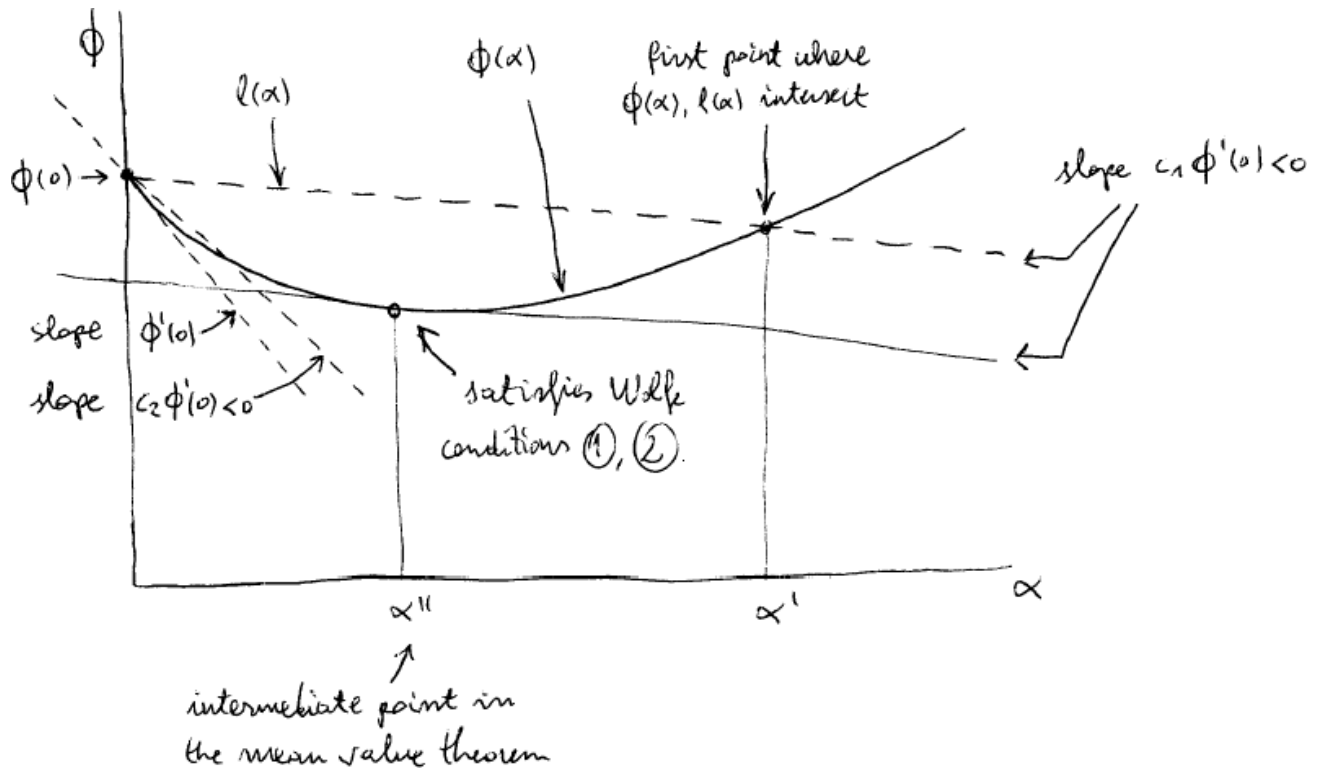 ϕ
ℓ(α)
ϕ(α)
first point where
ϕ(α), ℓ(α) intersect
ϕ(0) →
slope c₁ ϕ'(0) < 0
slope ϕ'(0)
slope c₂ ϕ'(0) < 0
satisfies Wolfe
conditions ①, ②.
α''
α'
α
intermediate point in
the mean value theorem